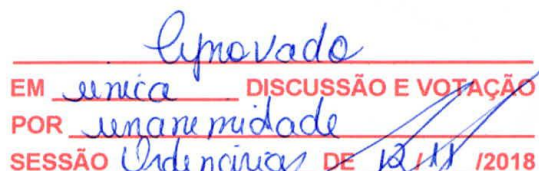 Aprovado
EM unica DISCUSSÃO E VOTAÇÃO
POR unanemidade
SESSÃO Ordenárias DE 12/11 /2018